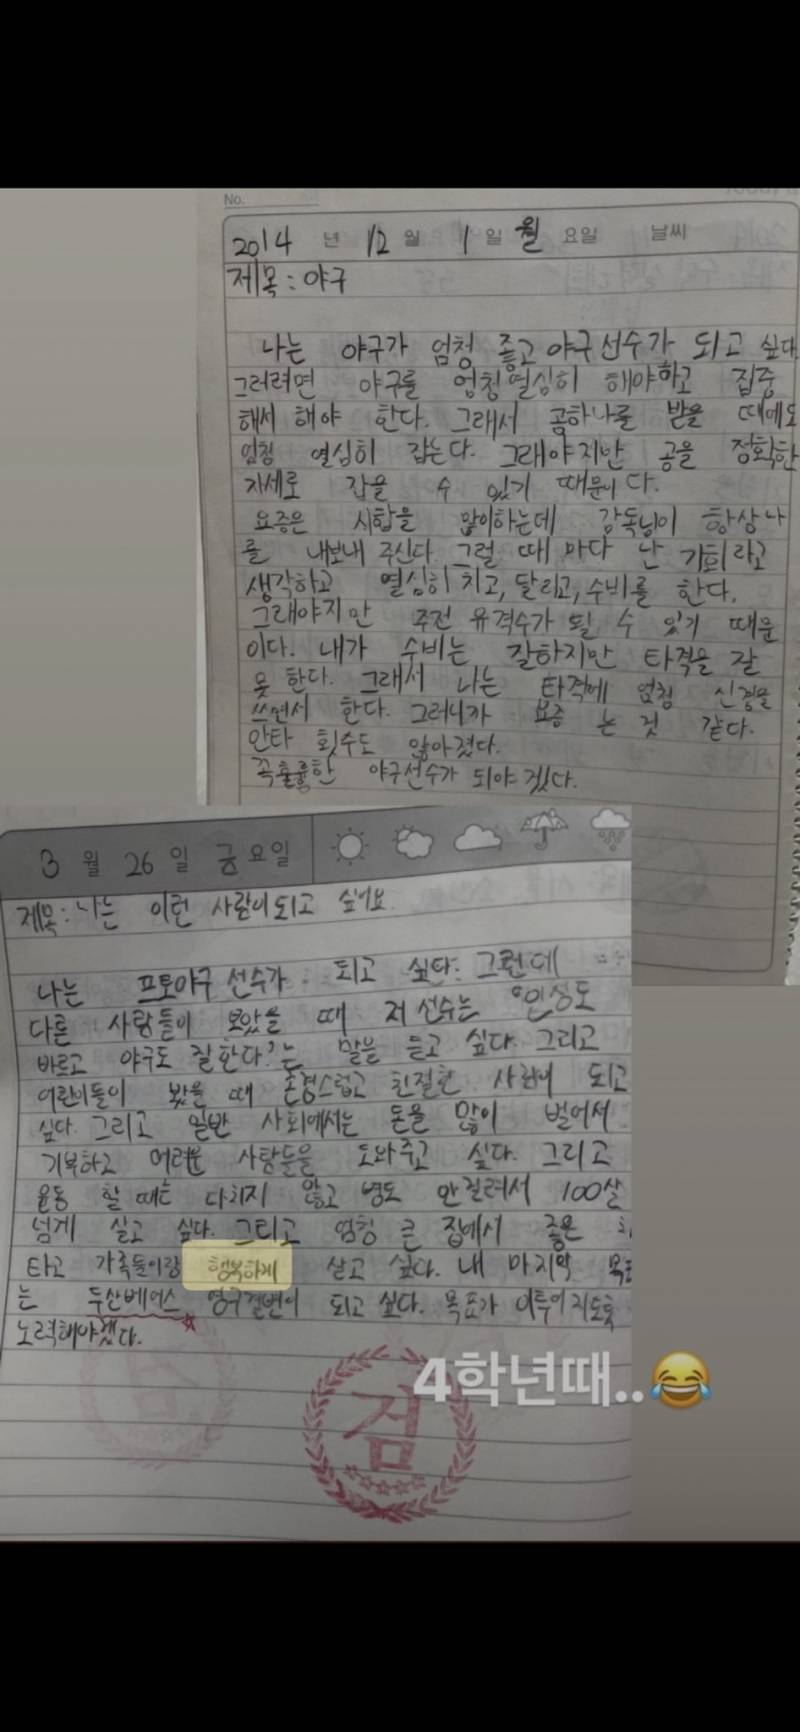 No.
2014 년 12 월 1 일 월 요일 날씨
제목 : 야구
나는 야구가 엄청 좋고 야구선수가 되고 싶다
그러려면 야구를 엄청열심히 해야하고 집중
해서 해야 한다. 그래서 공하나를 받을 때에도
엄청 열심히 잡는다. 그래야지만 공을 정확한
자세로 잡을 수 있기 때문이다.
요즘은 시합을 많이하는데 감독님이 항상 나
를 내보내 주신다. 그럴 때 마다 난 기회라고
생각하고 열심히 치고, 달리고, 수비를 한다.
그래야지만 주전 유격수가 될 수 있기 때문
이다. 내가 수비는 잘하지만 타격을 잘
못 한다. 그래서 나는 타격에 엄청 신경을
쓰면서 한다. 그러니까 요즘 는 것 같다.
안타 횟수도 많아졌다.
꼭훌륭한 야구선수가 되야 겠다.
3 월 26 일 금요일
제목 : 나는 이런 사람이되고 싶어요.
나는 프로야구 선수가 되고 싶다. 그런데
다른 사람들이 보았을 때 저 선수는 "인성도
바르고 야구도 잘한다."는 말을 듣고 싶다. 그리고
어린이들이 봤을 때 존경스럽고 친절한 사람이 되고
싶다. 그리고 일반 사회에서는 돈을 많이 벌어서
기부하고 어려운 사람들을 도와주고 싶다. 그리고
운동 할 때는 다치지 않고 병도 안걸려서 100살
넘게 살고 싶다. 그리고 엄청 큰 집에서 좋은
타고 가족들이랑 행복하게 살고 싶다. 내 마지막 목표
는 두산베어스 영구결번이 되고 싶다. 목표가 이루어지도록
노력해야겠다.
4학년때..😂
검